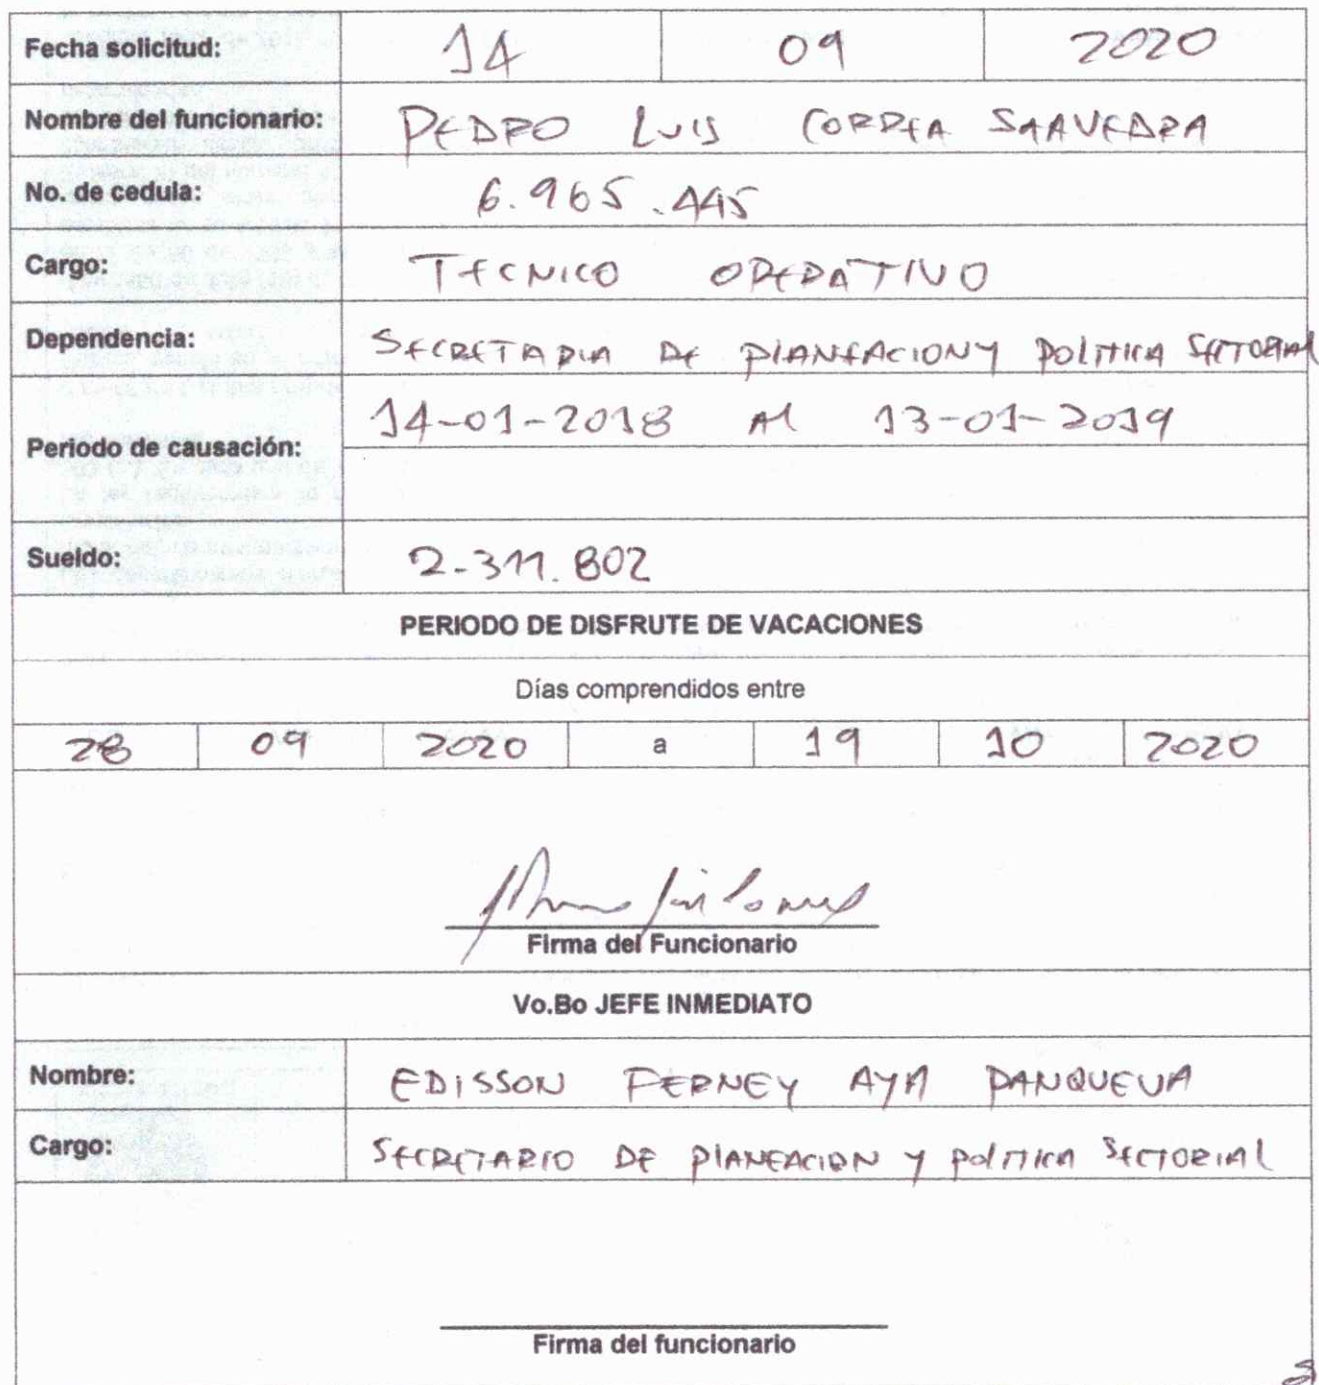 Fecha solicitud: 14 09 2020
Nombre del funcionario: PEDRO LUIS CORREA SAAVEDRA
No. de cedula: 6.965.445
Cargo: TECNICO OPERATIVO
Dependencia: SECRETARIA DE PlANEACION Y POlITICA SECTORIAl
Periodo de causación: 14-01-2018 Al 13-01-2019
Sueldo: 2-311.802
PERIODO DE DISFRUTE DE VACACIONES
Días comprendidos entre
28 09 2020 a 19 10 2020
Firma del Funcionario
Vo.Bo JEFE INMEDIATO
Nombre: EDISSON FERNEY AYA PANQUEVA
Cargo: SECRETARIO DE PlANEACION Y POlITICA SECTORIAL
Firma del funcionario